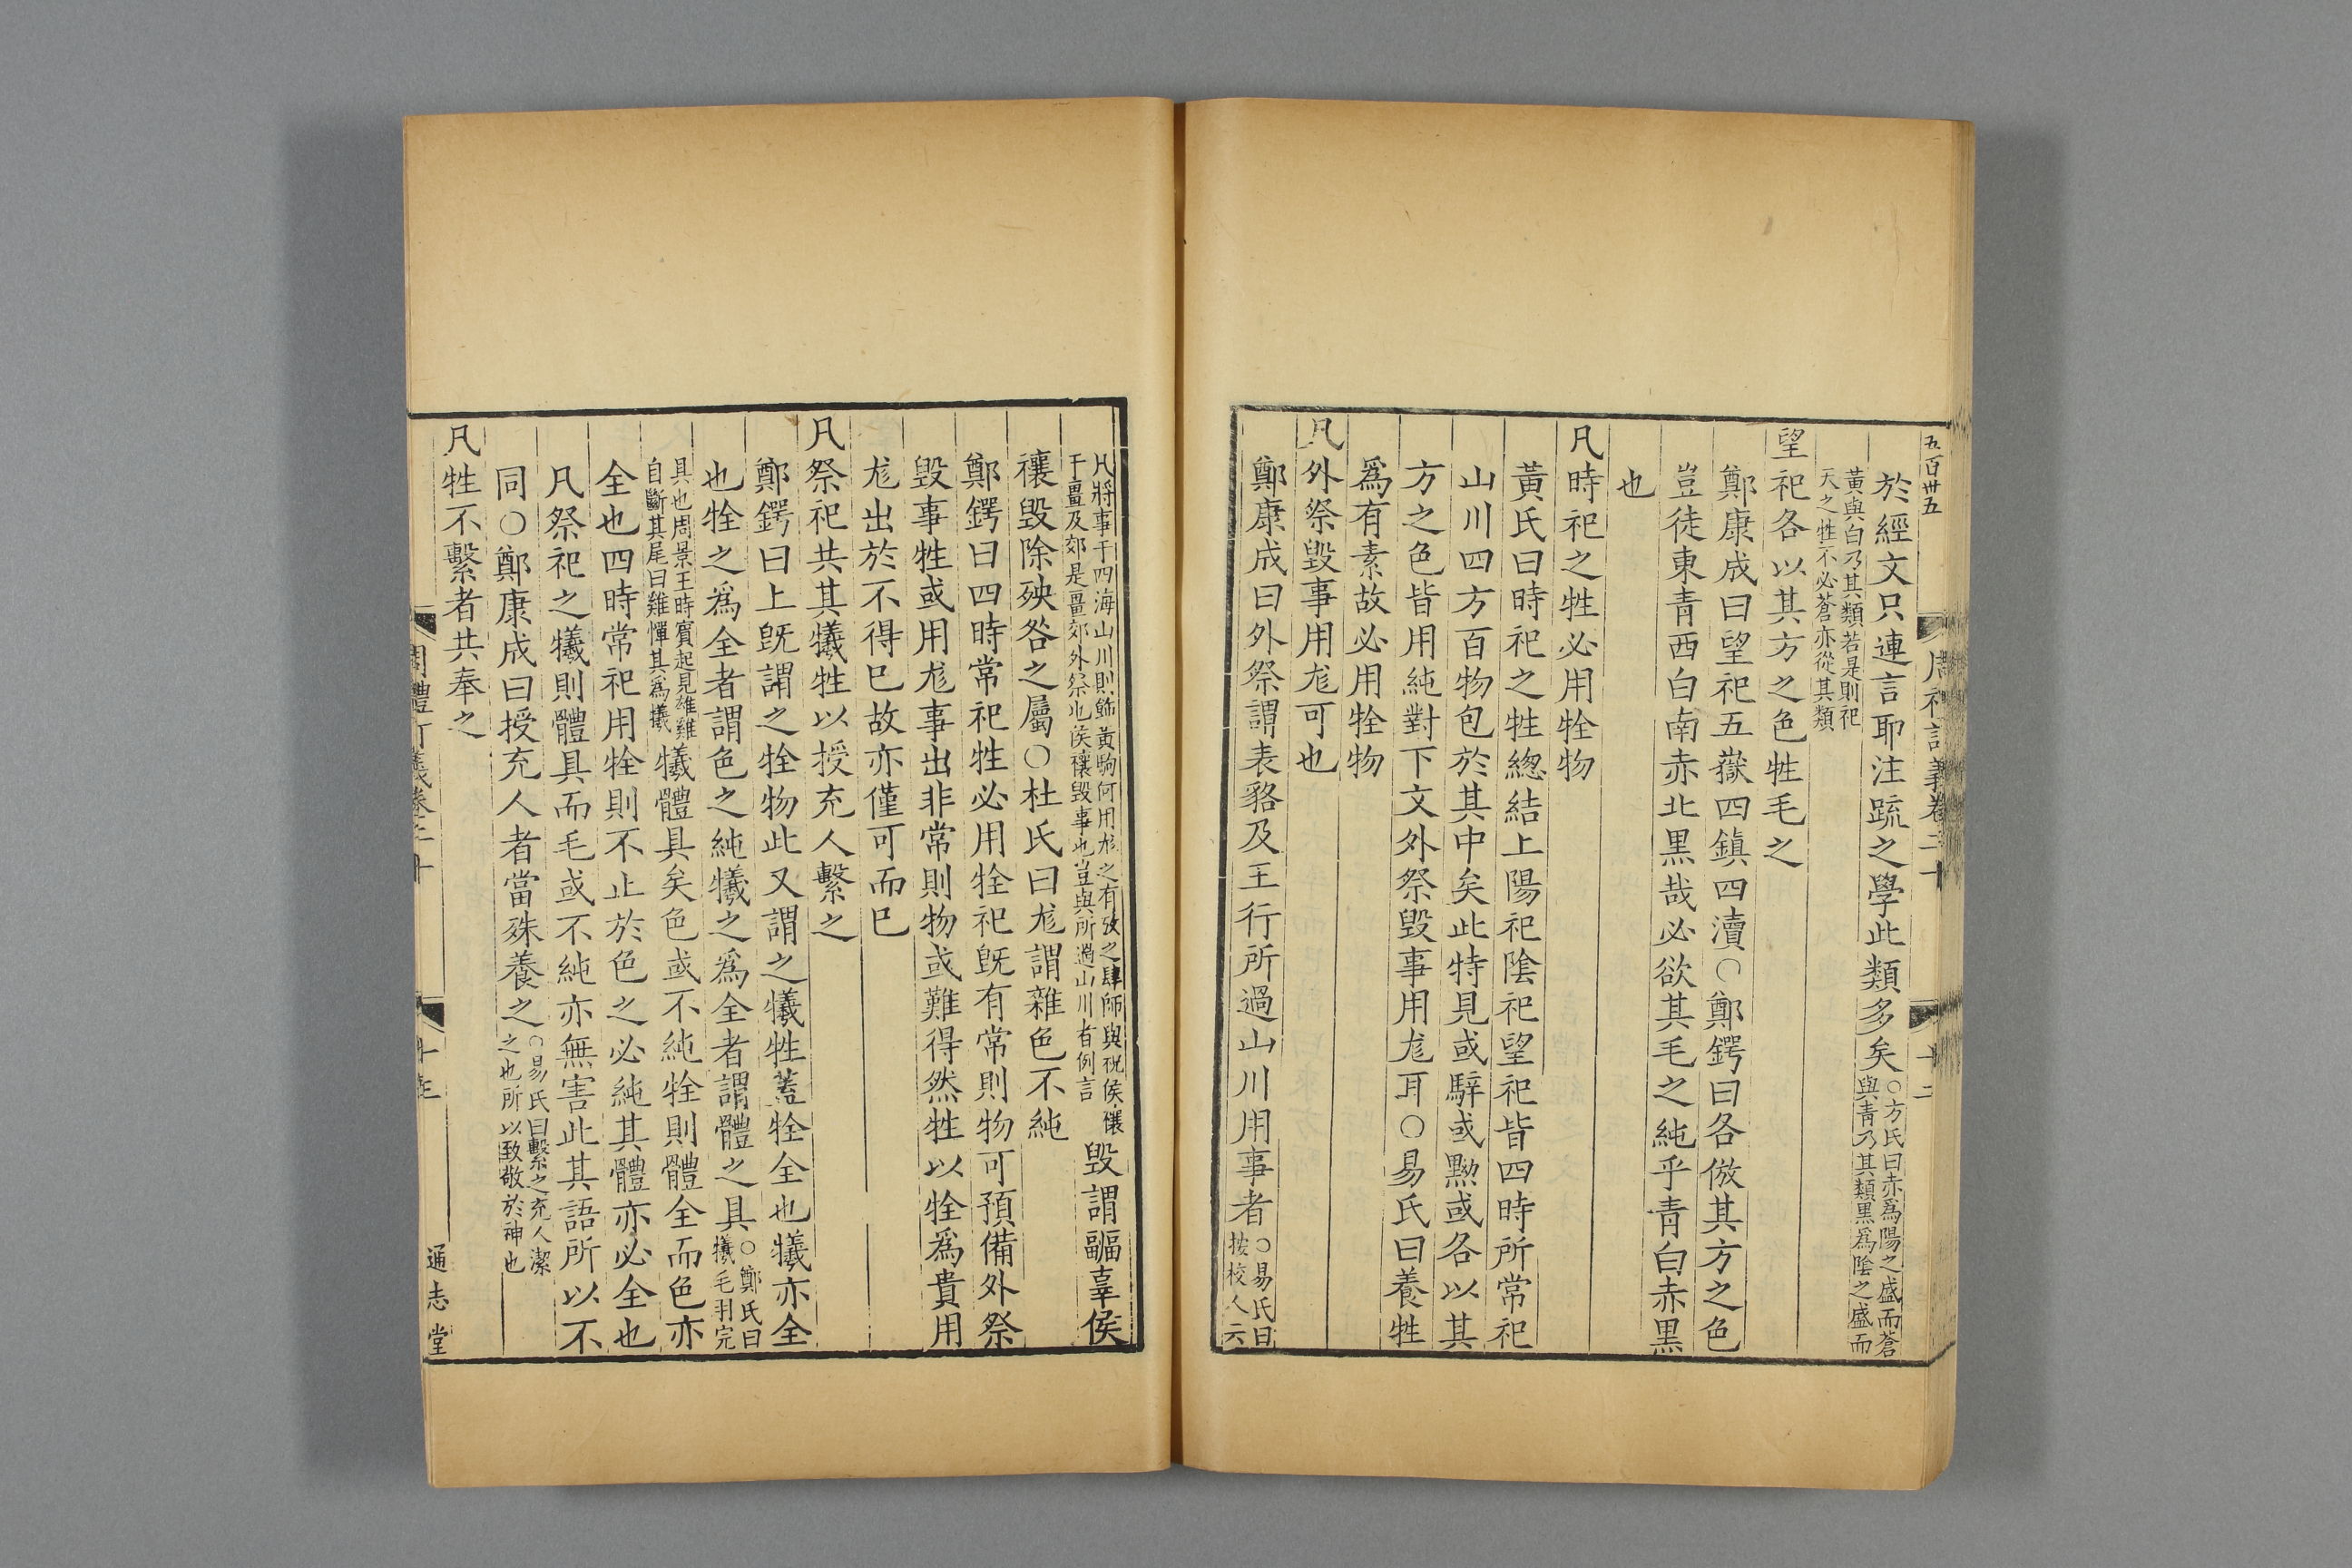 五百卅五
周禮訂義卷二十
十二
於經文只連言耶注疏之學此類多矣○方氏曰赤為陽之盛而蒼
與青乃其類黑為陰之盛而
黃與白乃其類若是則祀
天之牲不必蒼亦從其類
望祀各以其方之色牲毛之
鄭康成曰望祀五嶽四鎮四瀆○鄭鍔曰各倣其方之色
豈徒東青西白南赤北黑哉必欲其毛之純乎青白赤黑
也
凡時祀之牲必用牷物
黃氏曰時祀之牲緫結上陽祀陰祀望祀皆四時所常祀
山川四方百物包於其中矣此特見或騂或黝或各以其
方之色皆用純對下文外祭毀事用尨耳○易氏曰養牲
為有素故必用牷物
凡外祭毀事用尨可也
鄭康成曰外祭謂表貉及王行所過山川用事者○易氏曰
按校人云
凡將事于四海山川則飾黃駒何用尨之有攷之肆師與祝侯禳
于畺及郊是畺郊外祭也侯禳毀事也豈與所過山川者例言
毀謂疈辜侯
禳毀除殃咎之屬○杜氏曰尨謂雜色不純
鄭鍔曰四時常祀牲必用牷祀旣有常則物可預備外祭
毀事牲或用尨事出非常則物或難得然牲以牷為貴用
尨出於不得已故亦僅可而已
凡祭祀共其犧牲以授充人繫之
鄭鍔曰上旣謂之牷物此又謂之犧牲蓋牷全也犧亦全
也牷之為全者謂色之純犧之為全者謂體之具○鄭氏曰
犧毛羽完
具也周景王時賓起見雄雞
自斷其尾曰雞憚其為犧
犧體具矣色或不純牷則體全而色亦
全也四時常祀用牷則不止於色之必純其體亦必全也
凡祭祀之犧則體具而毛或不純亦無害此其語所以不
同○鄭康成曰授充人者當殊養之○易氏曰繫之充人潔
之也所以致敬於神也
凡牲不繫者共奉之
周禮訂義卷二十
十三
通志堂